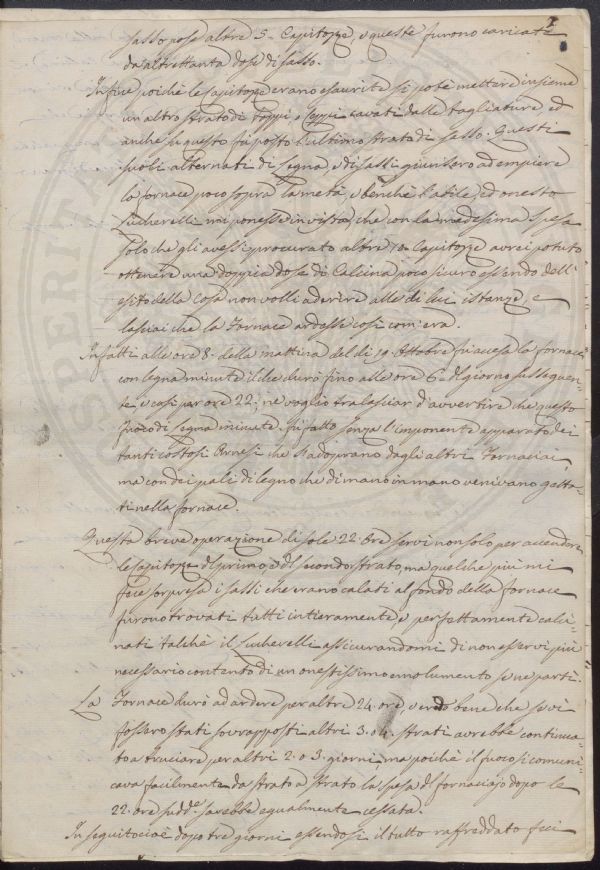 sasso pose altre 5. Capitozze, e queste furono caricate
da altrettanta dose di sasso.
Infine poiché le Capitozze erano esaurite si potè mettere insieme
un altro strato di Ceppi, e cavati dalle tagliature, ed
anche su questo fù posto l'ultimo strato di sasso. Questi
suoli alternati di legna, e di sassi giunsero ad empiere
la fornace poco sopra la metà, e benchè l'abile, ed onesto
Lucherelli mi ponesse in vista, che con la medesima spesa
solo che gli avessi procurato altre 10. Capitozze avrei potuto
ottenere una doppia dose di Calcina poco sicuro essendo dell'
esito della cosa non volli aderire alle di lui istanze, e
lasciai che la Fornace ardesse così com'era.
Infatti alle ore 8. della mattina del dì 19. Ottobre fù accesa la fornace
con legna minute il che durò fino alle ore 6. del giorno susseguen-
te, e così per ore 22; nè voglio tralasciar d'avvertire che questo
fuoco di legna minute, fu fatto senza l'imponente apparato dei
tanti costosi Arnesi che s'adoprano dagli altri Fornaciai,
ma con dei pali di legno che di mano in mano venivano getta-
ti nella fornace.
Questa breve operazione di sole 22. Ore servì non solo per accendere
le Capitozze del primo, e del secondo strato, ma quel che più mi
fece sorpresa i sassi che erano calati al fondo della fornace
furono trovati tutti intieramente, e perfettamente calci-
nati talchè il Lucherelli assicurandomi di non esservi più
necessario contento di un onestissimo emolumento se ne partì.
La Fornace durò ad ardere per altre 24. ore, e vedo bene che se vi
fossero stati sovrapposti altri 3. o 4. strati avrebbe continua-
to a bruciare per altri 2. o 3. giorni, ma poichè il fuoco si comuni-
cava facilmente da strato a strato la spesa del fornaciajo dopo le
22. ore sudde. sarebbe egualmente cessata.
In seguito cioè dopo tre giorni essendosi il tutto raffreddato feci